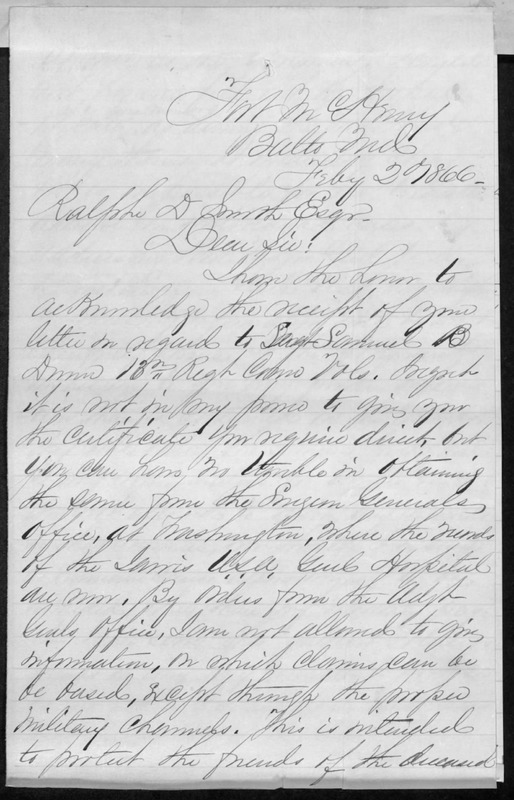 Fort McHenry
Balto Md
Feby 2 1866
Ralph D Smith Esqr.
Dear Sir:
I have the honor to
acknowledge the receipt of your
letter in regard to Sergt Samuel B
Dunn 18th Regt Conn Vols. I regret
it is not in my power to give you
the certificate you require direct, but
you can have no trouble in obtaining
the same from the Surgeon Generals
Office, at Washington, where the records
of the Jarvis U.S.A. Genl Hospital
are now. By orders from the Adjt
Genls Office, I am not allowed to give
information, on which claims can be
be based, except through the proper
Military Channels. This is intended
to protect the friends of the deceased